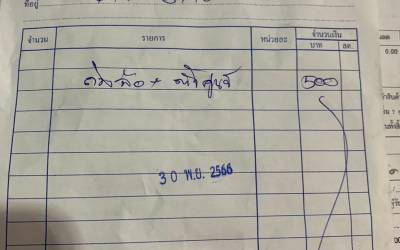 ที่อยู่
จำนวน รายการ หน่วยละ จำนวนเงิน
บาท สต.
ถ่วงล้อ + ตั้งศูนย์ 500
30 พ.ย. 2566
0.00